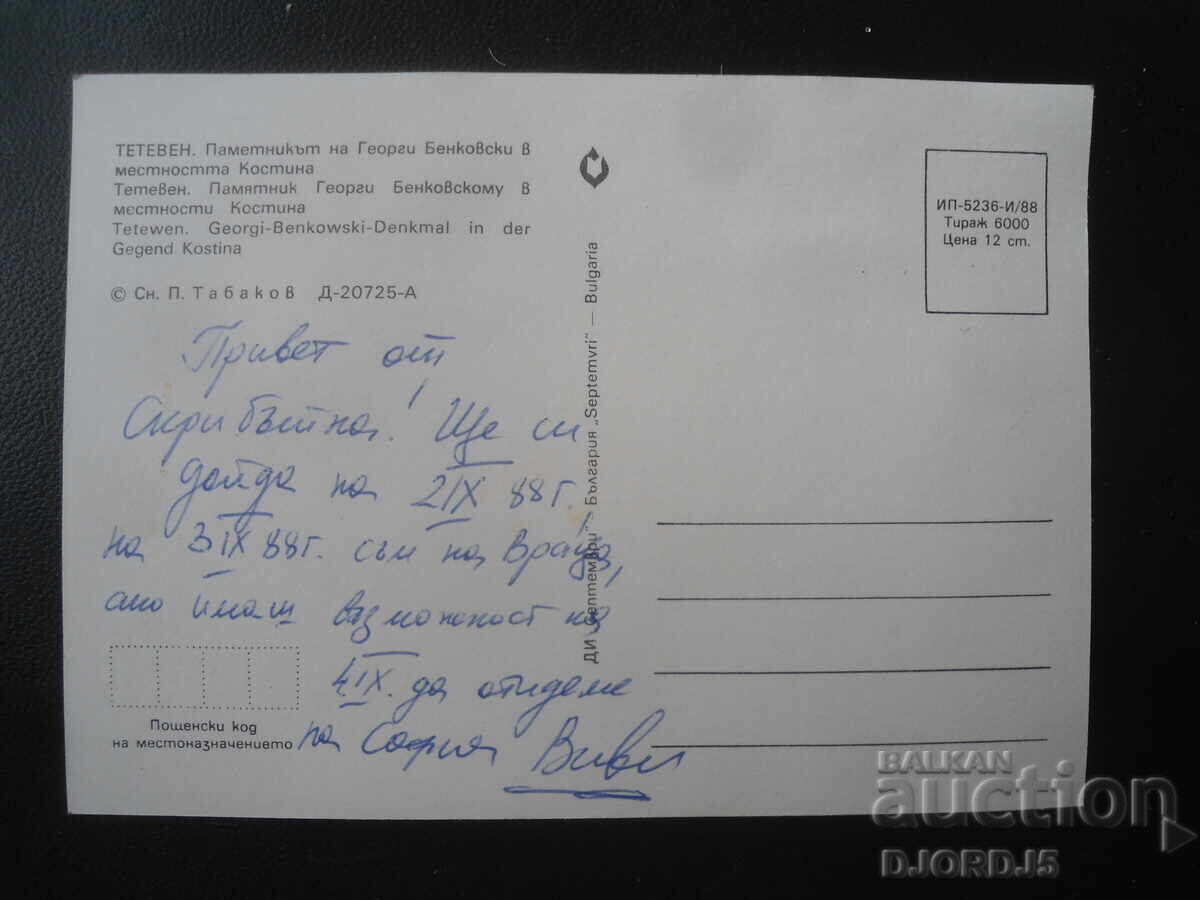 ТЕТЕВЕН. Паметникът на Георги Бенковски в
местността Костина
Тетевен. Памятник Георги Бенковскому в
местности Костина
Tetewen. Georgi-Benkowski-Denkmal in der
Gegend Kostina
© Сн. П. Табаков Д-20725-А
Привет от
Скрибътна! Ще си
дойда на 2 IX 88 г.
на 3 IX 88 г. съм на Враца,
ако имаш възможност на
4 IX. да отидеме
на София Виви
Пощенски код
на местоназначението
ДИ „Септември“ — България „Septemvri“ — Bulgaria
ИП-5236-И/88
Тираж 6000
Цена 12 ст.
BALKAN
auction
DJORDJ5